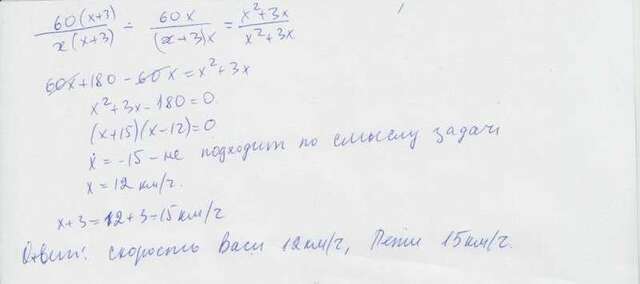 60(x+3)/x(x+3) - 60x/(x+3)x = x²+3x/x²+3x
60x+180-60x=x²+3x
x²+3x-180=0.
(x+15)(x-12)=0
x=-15-не подходит по смыслу задачи
x=12км/г.
x+3=12+3=15км/г
Ответ: скорость Васи 12км/г, Пети 15км/г.